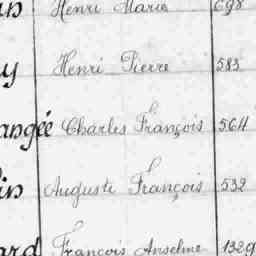 in Henri Marie 698
y Henri Pierre 583
angée Charles François 5611
in Auguste François 532
ard François Anselme 1329